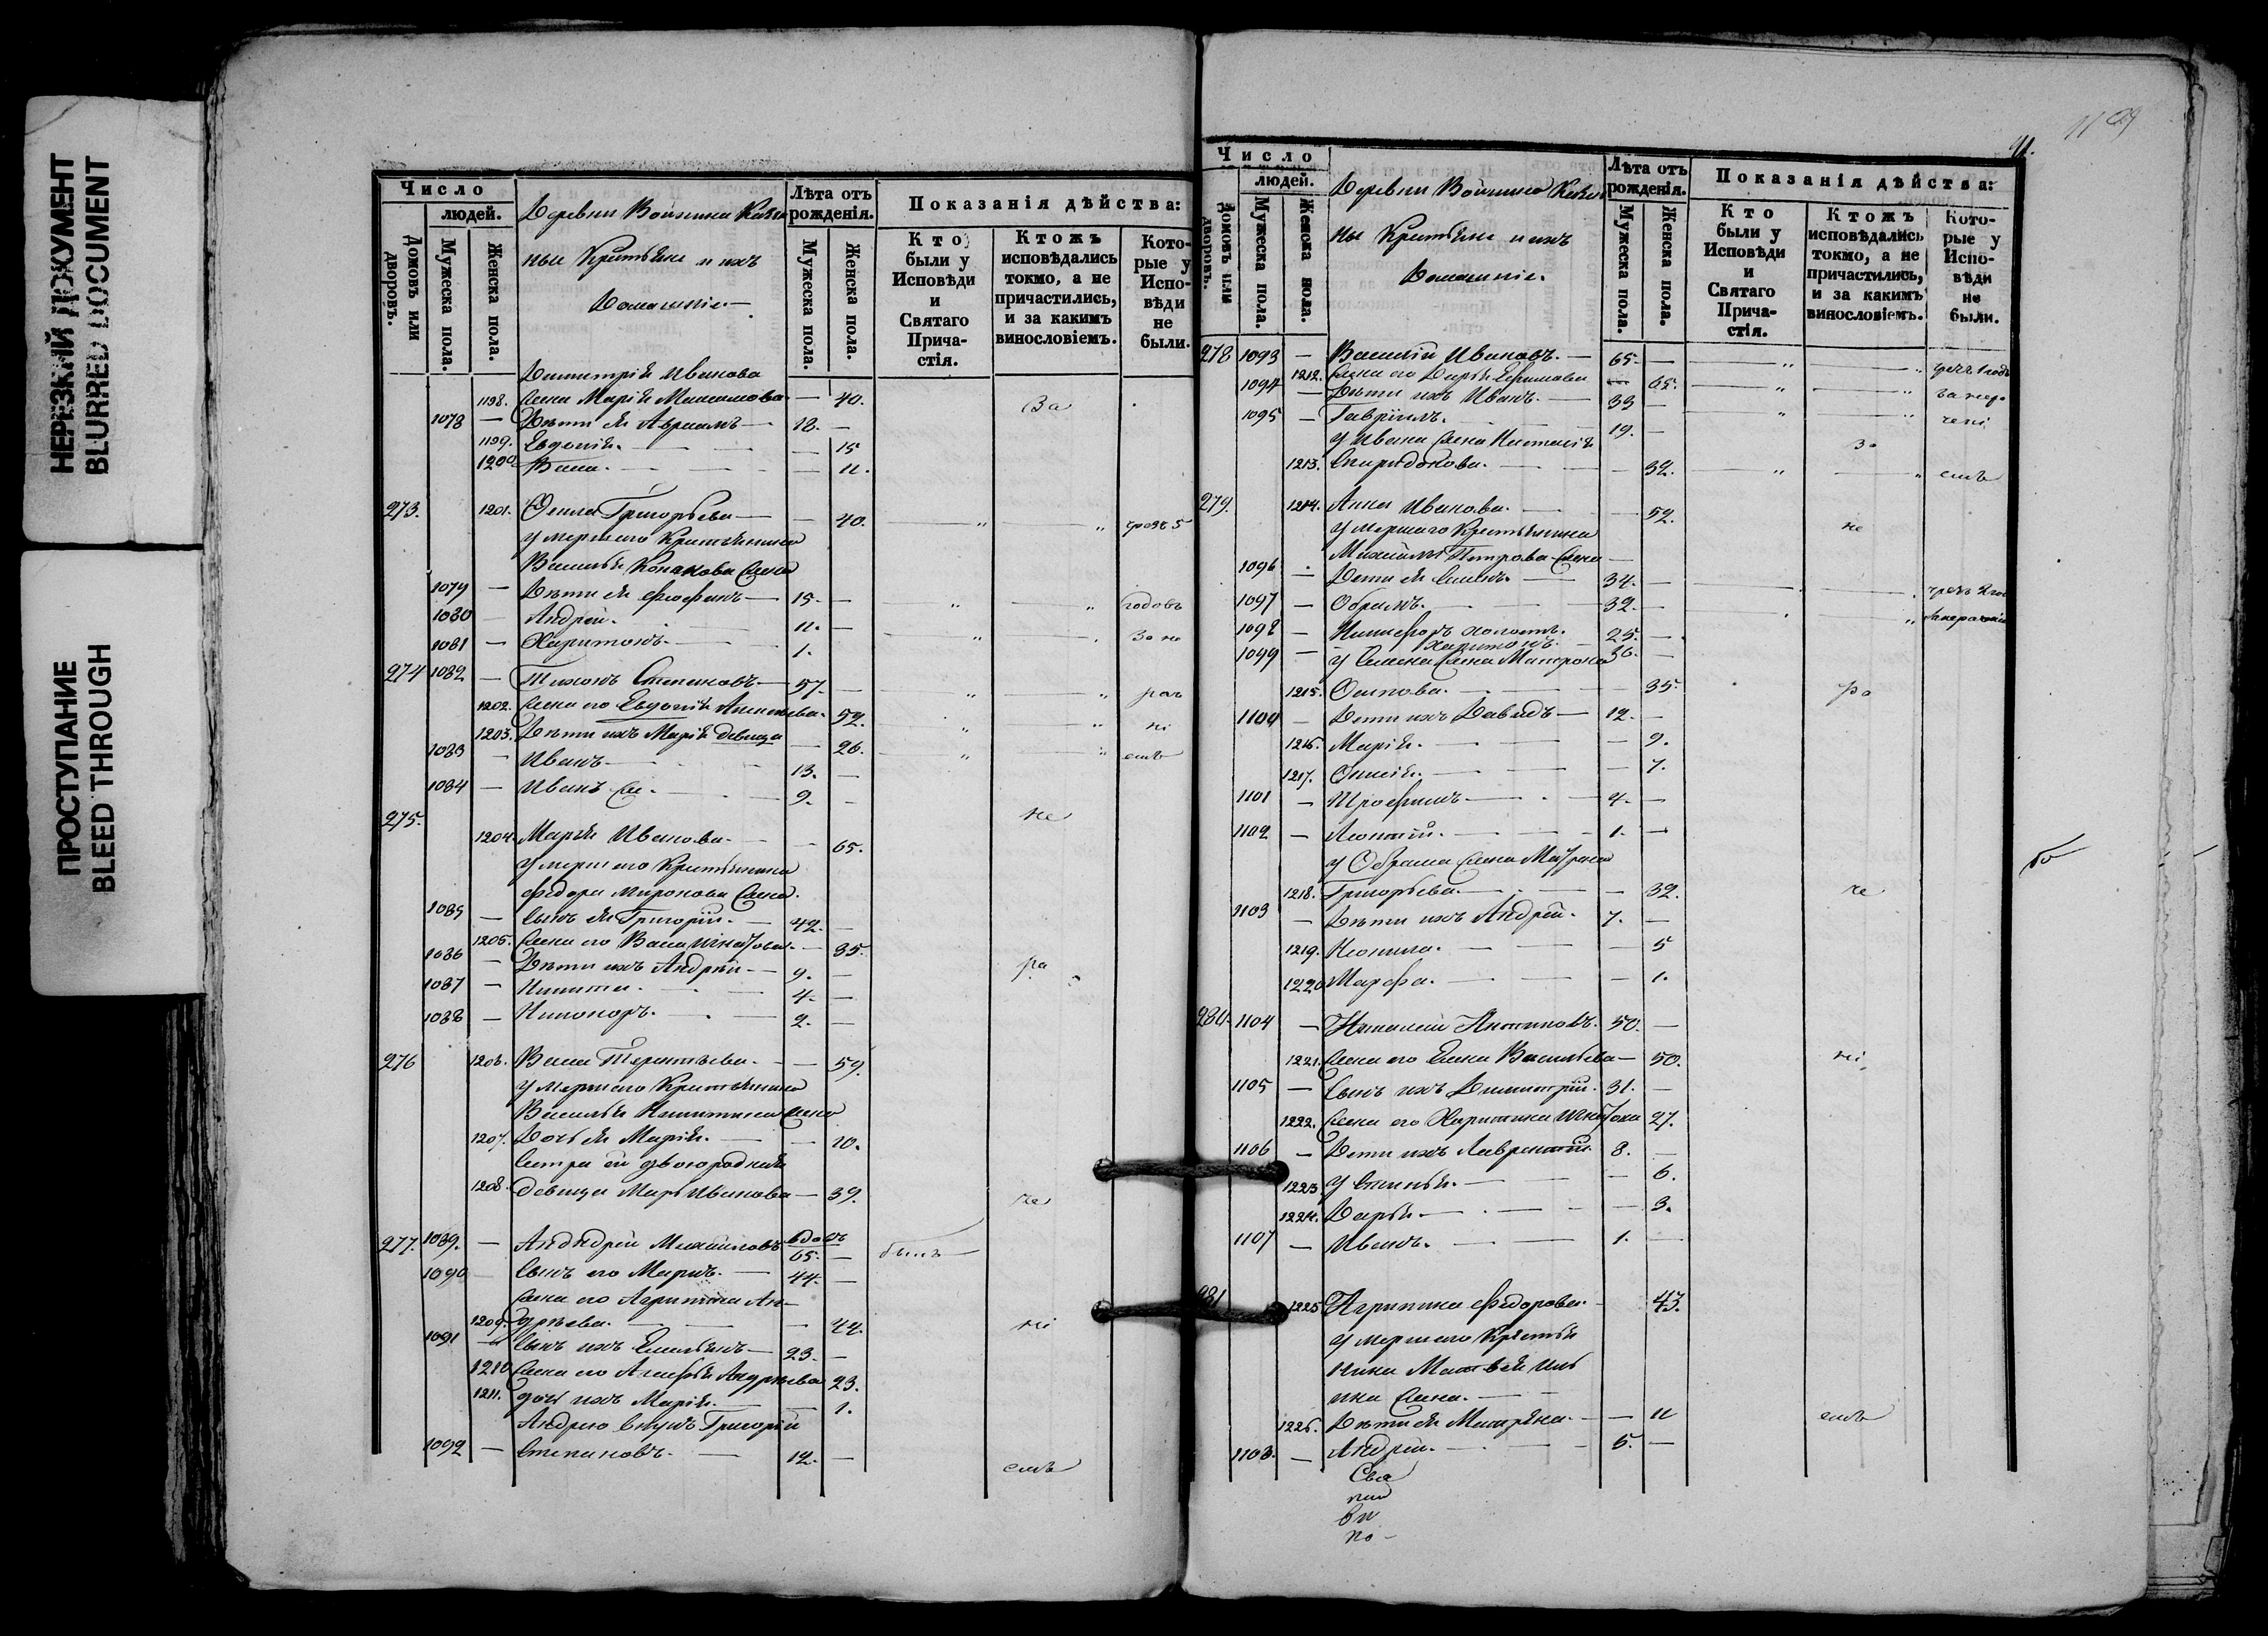 НЕРЕЗКИЙ ДОКУМЕНТ
BLURRED DOCUMENT
ПРОСТУПАНИЕ
BLEED THROUGH
Число
людей.
Домовъ или дворовъ.
Мужеска пола.
Женска пола.
Деревни Войнина Казен
ные Крестьяне и ихъ
Домашніе.
Лѣта отъ рожденія.
Мужеска пола.
Женска пола.
Показанія дѣйства:
Кто были у Исповѣди и Святаго Причастія.
Ктожъ исповѣдались токмо, а не причастились, и за какимъ винословіемъ.
Которые у Исповѣди не были.
Димитрія Иванова
1198. Жена Марія Максимова — 40. За
1078 — Дѣти ея Авраамъ — 12. —
1199. Евдокія. — 15
1200 Васса. — 11.
273. 1201. Ѳекла Григорьева — 40. чрезъ 5
умершаго Крестьянина
Василья Конакова Жена
1079 — Дѣти ея — 15. — годовъ
1080 — Андрей. 11. — За не
1081 — Харитонъ. 1.
274 1082 — Тихонъ Степановъ. — 57. — ра
1202. Жена его Евдокія — 52. ні
1203. Дѣти ихъ Марія девица — 26. емъ
1083 — Иванъ — 13. —
1084 — Иванъ 9. —
275. не
1204. Марья Иванова. — 65.
умершаго Крестьянина
Федора Миронова Жена.
1085 — Сынъ ея Григорій. — 42. —
1205. Жена его Васса Игнатова. — 35.
1086 — Дѣти ихъ Андрей — 9. — ра
1087 — Никита. 4. —
1088 — Никоноръ. 2. —
276 1206. Васса Терентьева. — 59.
умершаго Крестьянина
Василья Никитина Жена
1207. Дочь ея Марія. — 10.
Сестра ей двоюродная
1208. девица Марья Иванова — 39. че
277. 1089. — Андрей Михайловъ вдовъ 65. — былъ
1090 — Сынъ его Маркъ. — 44. —
Жена его Агрипина Ан-
1209. дрѣева. — 44. ні
1091 — Сынъ ихъ Емельянъ — 23. —
1210 Жена его Андрѣева 23.
1211. дочь ихъ Марія. — 1.
Андрею внукъ Григорій
1092 — Степановъ. — 12. — емъ
Число
людей.
Домовъ или дворовъ.
Мужеска пола.
Женска пола.
Деревни Войнина Казен
ные Крестьяне и ихъ
Домашніе.
Лѣта отъ рожденія.
Мужеска пола.
Женска пола.
Показанія дѣйства:
Кто были у Исповѣди и Святаго Причастія.
Ктожъ исповѣдались токмо, а не причастились, и за какимъ винословіемъ.
Которые у Исповѣди не были.
278 1093 — Василій Ивановъ. — 65. —
1212. Жена его Дарья Ефимова 65.
1094 — Дѣти ихъ Иванъ. — 33 — за нера
1095 — Гавріилъ. 19. — чені
у Ивана Жена Наталія За
1213. Спиридонова. — 32. емъ
279. 1214. Анна Иванова. — 52.
умершаго Крестьянина не
Михайла Петрова Жена —
1096 — Дети ея Семенъ. — 34. —
1097 — Обрамъ. — 32. —
1098 — Никифоръ холостъ. 25. —
1099 — Харитонъ. 36. —
у Семена Жена Матрона
1215. Осипова. — 35. ра
1100 — Дети ихъ Давидъ — 12. —
1216. Марія. — 9.
1217. — 7.
1101 — Трофимъ. — 4. —
1102 — Леонтій. — 1. —
у Обрама Жена Матрона
1218. Григорьева. — 32. че
1103 — Дѣти ихъ Андрей. 7. —
1219. Неонила. — 5
1220 Марфа. — 1.
280. 1104 — Антиповъ. 50. —
1221. Жена его Елена Васильева — 50. ні
1105 — Сынъ ихъ Димитрій. 31. —
1222. Жена его Харитина Игнатова 27.
1106 — Дети ихъ Лаврентій 8. —
1223 Устинья. — 6.
1224. Дарья — 3.
1107 — Иванъ. — 1. —
281 1225 Агрипина Федорова. — 43.
умершаго Крестья
нина Матвея Иль
ина Жена. —
1226. Дѣти ея Матрена. — 11 емъ
1108. — Андрей. — 5. —